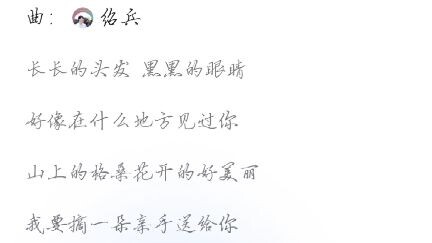 曲：绍兵
长长的头发 黑黑的眼睛
好像在什么地方见过你
山上的格桑花开的好美丽
我要摘一朵亲手送给你